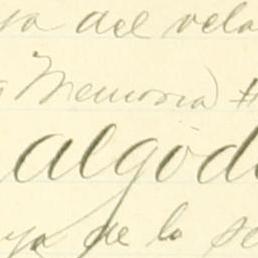 del vela
Memoria) #
algod
ya de la se